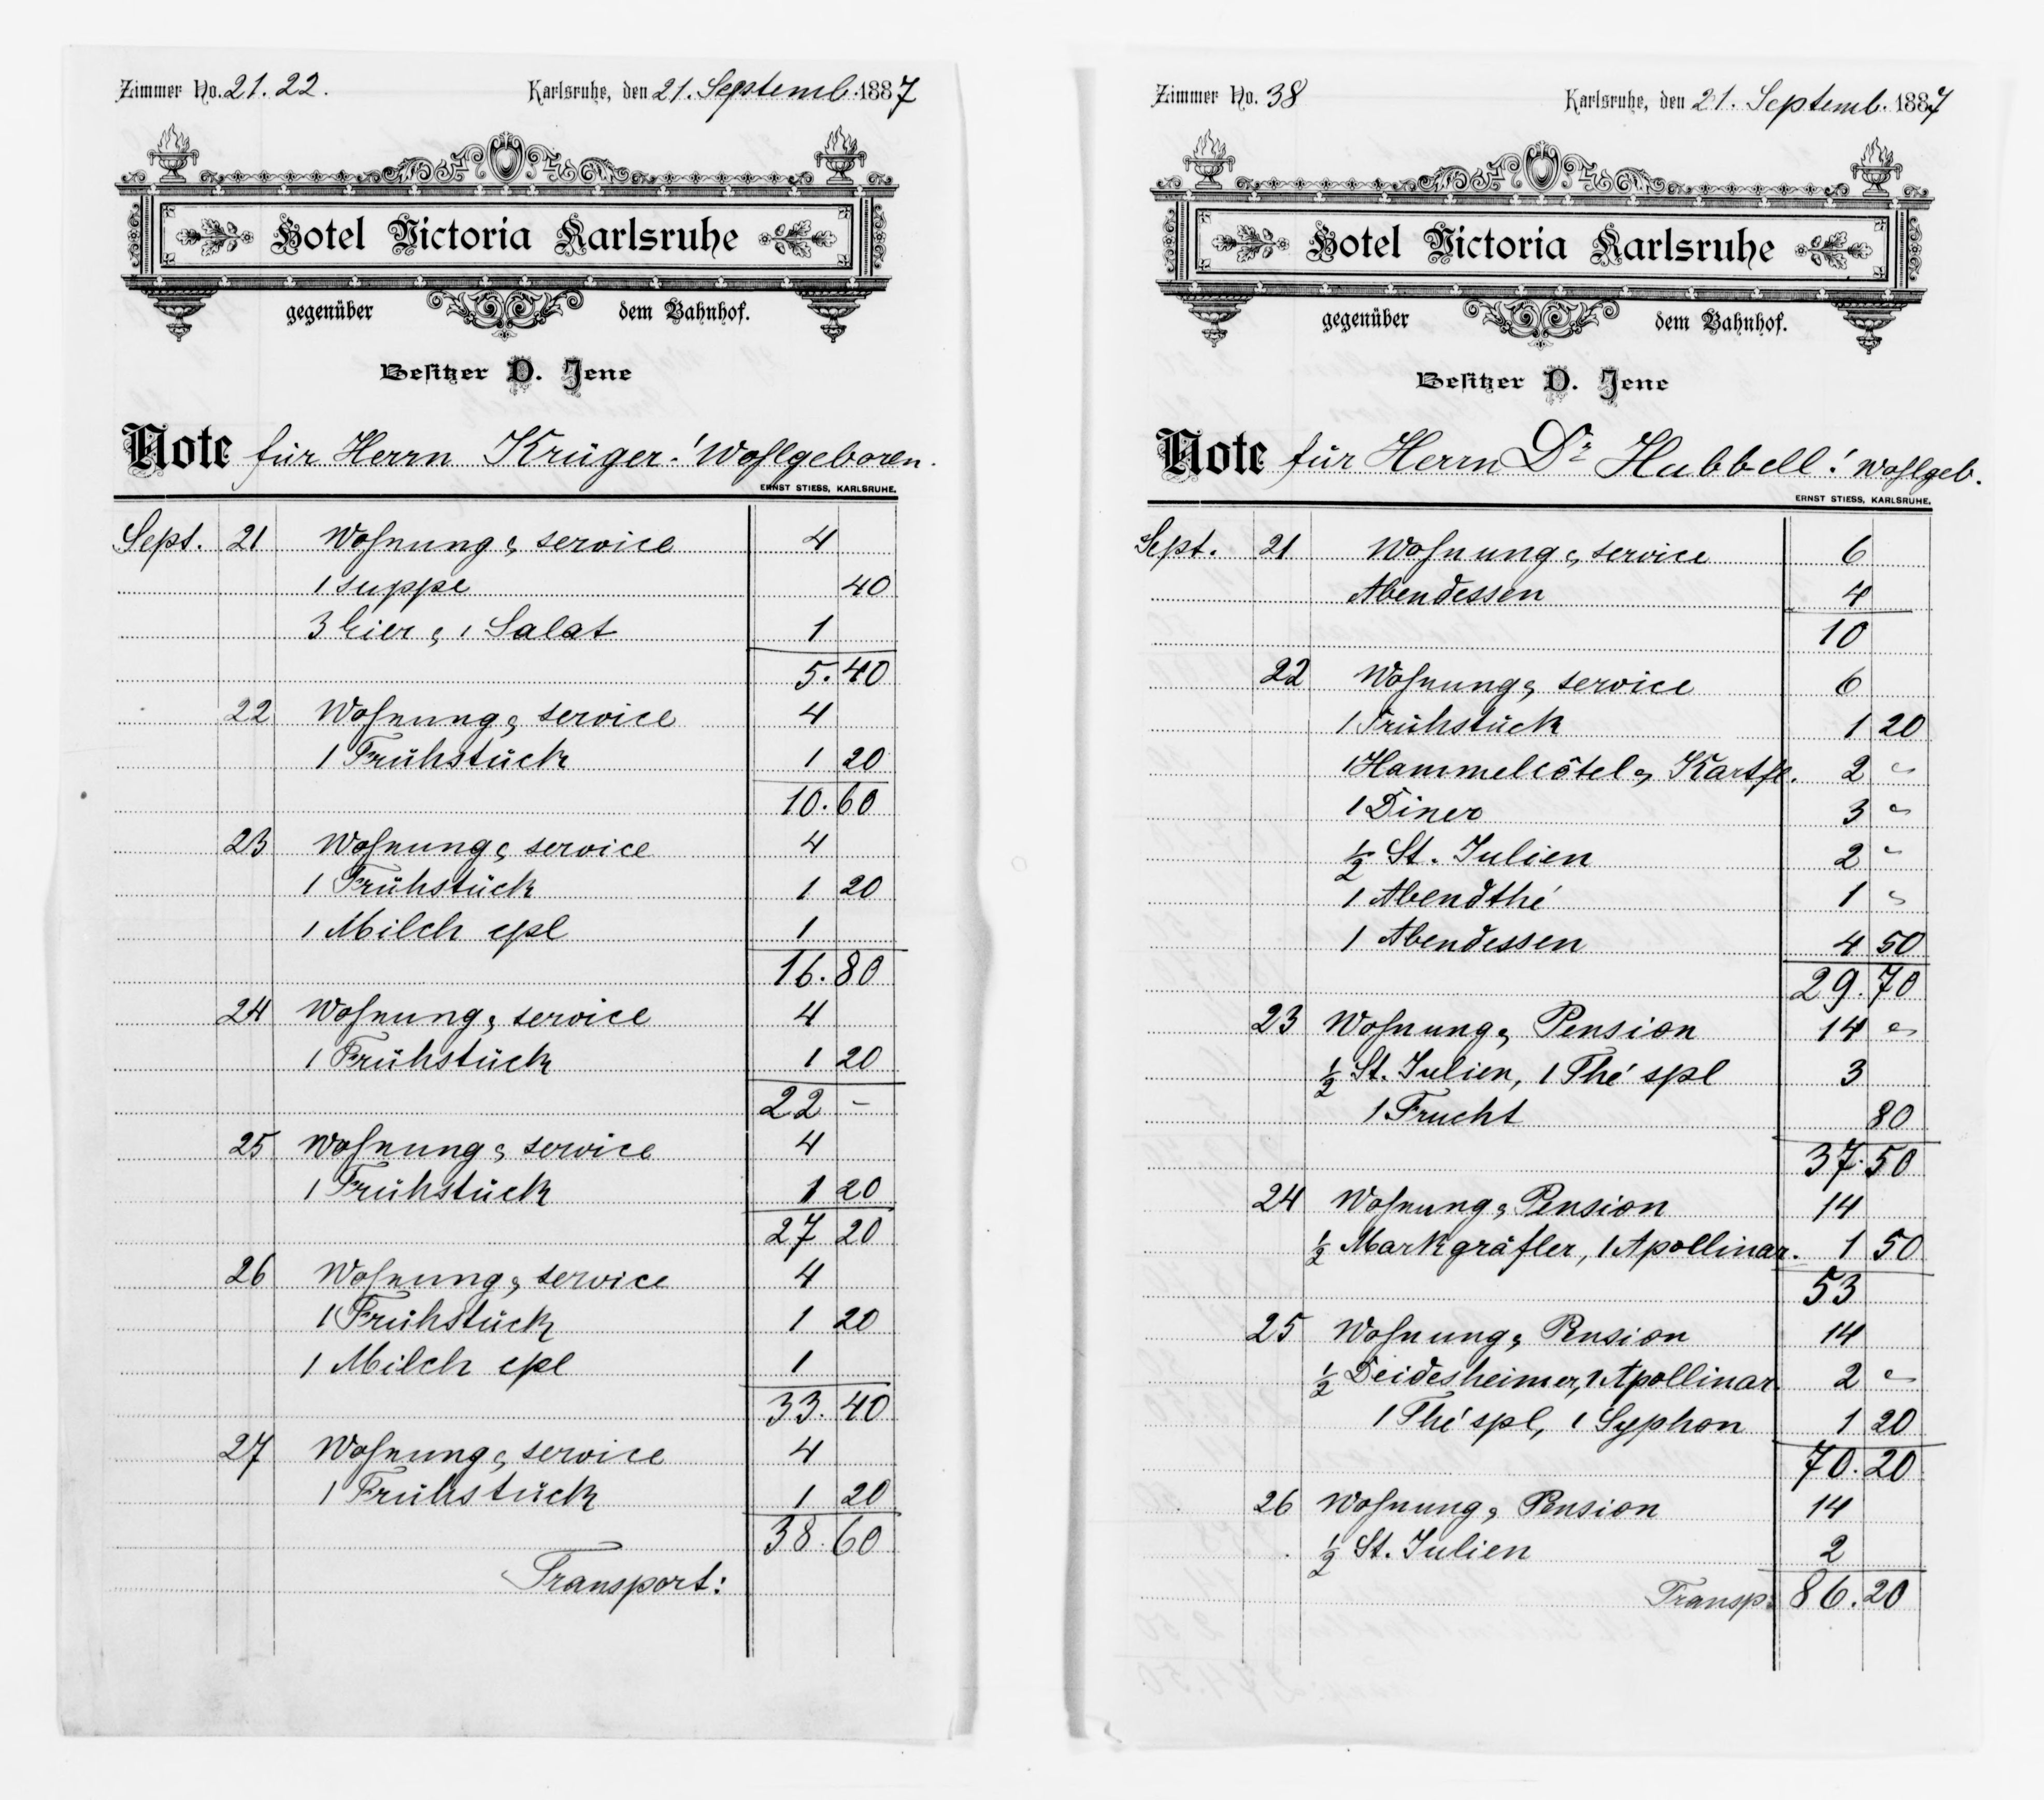 Zimmer No. 21. 22.
Karlsruhe, den 21. Septemb. 1887
Hotel Victoria Karlsruhe
gegenüber dem Bahnhof.
Besitzer D. Jene
Note für Herrn Krüger.! Wohlgeboren.
ERNST STIESS, KARLSRUHE.
Sept. 21 Wohnung & service 4
1 suppe 40
3 Eier & 1 Salat 1
5.40
22 Wohnung & service 4
1 Frühstück 1 20
10.60
23 Wohnung & service 4
1 Frühstück 1 20
1 Milch cpl 1
16.80
24 Wohnung & service 4
1 Frühstück 1 20
22 -
25 Wohnung & service 4
1 Frühstück 1 20
27 20
26 Wohnung & service 4
1 Frühstück 1 20
1 Milch cpl 1
33.40
27 Wohnung & service 4
1 Frühstück 1 20
38.60
Transport:
Zimmer No. 38
Karlsruhe, den 21. Septemb. 1887
Hotel Victoria Karlsruhe
gegenüber dem Bahnhof.
Besitzer D. Jene
Note für Herrn Dr Hubbell! Wohlgeb.
ERNST STIESS, KARLSRUHE.
Sept. 21 Wohnung & service 6
Abendessen 4
10
22 Wohnung & service 6
1 Frühstück 1 20
1 Hammelcôtel & Kartfl. 2 "
1 Diner 3 "
1/2 St. Julien 2 "
1 Abendthé 1 "
1 Abendessen 4 50
29.70
23 Wohnung & Pension 14 "
1/2 St. Julien, 1 Thé spl 3
1 Frucht 80
37.50
24 Wohnung & Pension 14
1/2 Markgräfler, 1 Apollinar. 1 50
53
25 Wohnung & Pension 14
1/2 Deidesheimer, 1 Apollinar. 2 "
1 Thé spl, 1 Syphon 1 20
70.20
26 Wohnung & Pension 14
1/2 St. Julien 2
Transp: 86.20